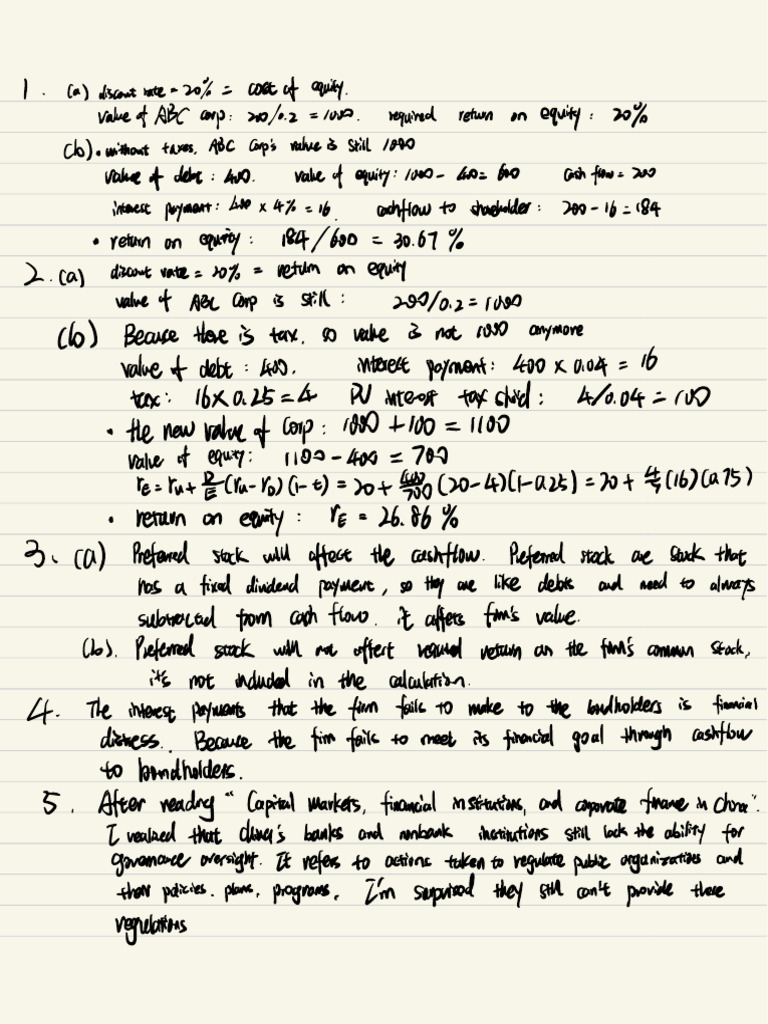 1. (a) discount rate = 20% = cost of equity.
value of ABC corp: 200/0.2 = 1000. required return on equity: 20%
(b) • without taxes, ABC Corp's value is still 1000
value of debt: 400. value of equity: 1000 - 400 = 600 cash flow = 200
interest payment: 400 x 4% = 16. cashflow to shareholder: 200 - 16 = 184
• return on equity: 184/600 = 30.67%
2. (a) discount rate = 20% = return on equity
value of ABC Corp is still: 200/0.2 = 1000
(b) Because there is tax, so value is not 1000 anymore
value of debt: 400. interest payment: 400 x 0.04 = 16
tax: 16 x 0.25 = 4 PV interest tax shield: 4/0.04 = 100
• the new value of corp: 1000 + 100 = 1100
value of equity: 1100 - 400 = 700
rE = ru + D/E (ru - rD) (1 - t) = 20 + 400/700 (20 - 4) (1 - 0.25) = 20 + 4/7 (16) (0.75)
• return on equity: rE = 26.86%
3. (a) Preferred stock will affect the cashflow. Preferred stock are stock that
has a fixed dividend payment, so they are like debts and need to always
subtracted from cash flow. it affects firm's value.
(b). Preferred stock will not affect required return on the firm's common stock,
it's not included in the calculation.
4. The interest payments that the firm fails to make to the bondholders is financial
distress. Because the firm fails to meet its financial goal through cashflow
to bondholders.
5. After reading "Capital markets, financial institutions, and corporate finance in China".
I realized that China's banks and nonbank institutions still lack the ability for
governance oversight. It refers to actions taken to regulate public organizations and
their policies. plans, programs. I'm surprised they still can't provide these
regulations